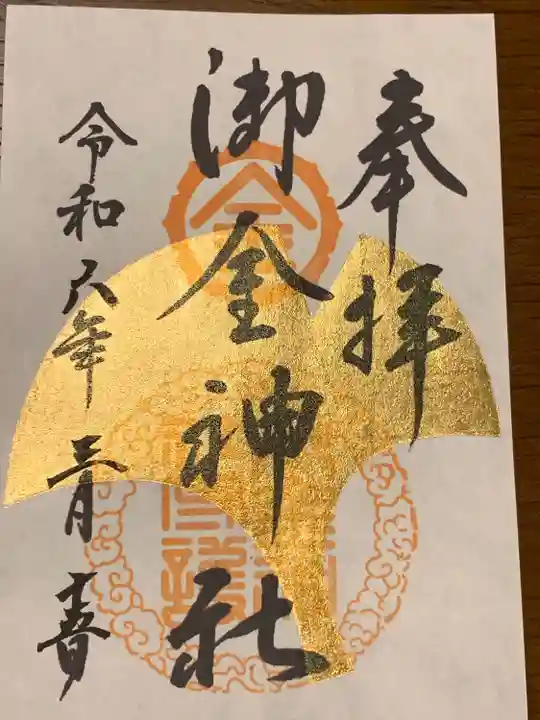 奉拝
御金神社
令和六年三月